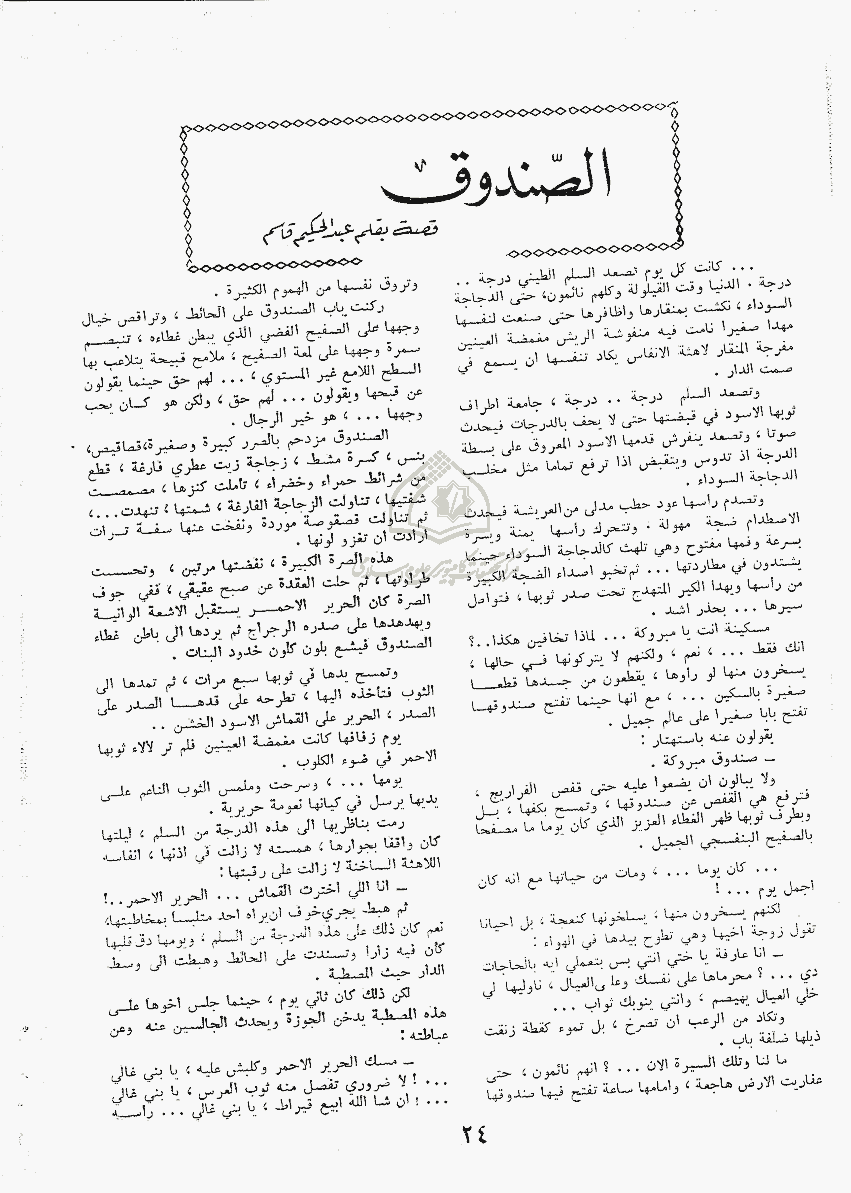 الصندوق
قصة بقلم عبد الحكيم قاسم
... كانت كل يوم تصعد السلم الطيني درجة ..
درجة . الدنيا وقت القيلولة وكلهم نائمون، حتى الدجاجة
السوداء ، نكشت بمنقارها واظافرها حتى صنعت لنفسها
مهدا صغيرا نامت فيه منفوشة الريش مغمضة العينين
مفرجة المنقار لاهثة الانفاس يكاد تنفسها ان يسمع في
صمت الدار .
وتصعد السلم درجة .. درجة ، جامعة اطراف
ثوبها الاسود في قبضتها حتى لا يحف بالدرجات فيحدث
صوتا ، وتصعد ينفرش قدمها الاسود المعروق على بسطة
الدرجة اذ تدوس ويتقبض اذا ترفع تماما مثل مخلب
الدجاجة السوداء .
وتصدم راسها عود حطب مدلى من العريشة فيحدث
الاصطدام ضجة مهولة . وتتحرك راسها يمنة ويسرة
بسرعة وفمها مفتوح وهي تلهث كالدجاجة السوداء حينما
يشتدون في مطاردتها ... ثم تخبو اصداء الضجة الكبيرة
من راسها ويهدا الكير المتهدج تحت صدر ثوبها ، فتواصل
سيرها ... بحذر اشد .
مسكينة انت يا مبروكة ... لماذا تخافين هكذا..؟
انك فقط ... ، نعم ، ولكنهم لا يتركونها في حالها ،
يسخرون منها لو راوها ، يقطعون من جسدها قطعا
صغيرة بالسكين ... ، مع انها حينما تفتح صندوقها
تفتح بابا صغيرا على عالم جميل .
يقولون عنه باستهتار :
– صندوق مبروكة .
ولا يبالون ان يضعوا عليه حتى قفص الفراريج ،
فترفع هي القفص عن صندوقها ، وتمسح بكفها ، بل
وبطرف ثوبها ظهر الغطاء العزيز الذي كان يوما ما مصفحا
بالصفيح البنفسجي الجميل .
... كان يوما ... ، ومات من حياتها مع انه كان
اجمل يوم ... !
لكنهم يسخرون منها ، يسلخونها كنعجة ، بل احيانا
تقول زوجة اخيها وهي تطوح بيدها في الهواء :
– انا عارفة يا ختي انتي بس بتعملي ايه بالحاجات
دي ... ؟ محرماها على نفسك وعلى العيال ، ناوليها لي
خلي العيال يهيصم ، وانتي ينوبك ثواب ...
وتكاد من الرعب ان تصرخ ، بل تموء كقطة زنقت
ذيلها ضلفة باب .
ما لنا وتلك السيرة الان ... ؟ انهم نائمون ، حتى
عفاريت الارض هاجعة ، وامامها ساعة تفتح فيها صندوقها
وتروق نفسها من الهموم الكثيرة .
ركنت باب الصندوق على الحائط ، وتراقص خيال
وجهها على الصفيح الفضي الذي يبطن غطاءه ، تنبصم
سمرة وجهها على لمعة الصفيح ، ملامح قبيحة يتلاعب بها
السطح اللامع غير المستوي ، ... لهم حق حينما يقولون
عن قبحها ويقولون ... لهم حق ، ولكن هو كان يحب
وجهها ... ، هو خير الرجال .
الصندوق مزدحم بالصرر كبيرة وصغيرة، قصاقيص،
بنس ، كسرة مشط ، زجاجة زيت عطري فارغة ، قطع
من شرائط حمراء وخضراء ، تاملت كنزها ، مصمصت
شفتيها ، تناولت الزجاجة الفارغة ، شمتها ، تنهدت ...،
ثم تناولت قصقوصة موردة ونفخت عنها سفة تراب
ارادت ان تغزو لونها .
هذه الصرة الكبيرة ، نفضتها مرتين ، وتحسست
طراوتها ، ثم حلت العقدة عن صبح عقيقي ، ففي جوف
الصرة كان الحرير الاحمر يستقبل الاشعة الوانية
ويهدهدها على صدره الرجراج ثم يردها الى باطن غطاء
الصندوق فيشع بلون كلون خدود البنات .
وتمسح يدها في ثوبها سبع مرات ، ثم تمدها الى
الثوب فتأخذه اليها ، تطرحه على قدها الصدر على
الصدر ، الحرير على القماش الاسود الخشن ..
يوم زفافها كانت مغمضة العينين فلم تر لالاء ثوبها
الاحمر في ضوء الكلوب .
يومها ... ، وسرحت وملمس الثوب الناعم على
يديها يرسل في كيانها نعومة حريرية .
رمت بناظريها الى هذه الدرجة من السلم ، ليلتها
كان واقفا بجوارها ، همسته لا زالت في اذنها ، انفاسه
اللاهثة الساخنة لا زالت على رقبتها :
– انا اللي اخترت القماش ... الحرير الاحمر..!
ثم هبط يجري خوف ان يراه احد متلبسا بمخاطبتها،
نعم كان ذلك على هذه الدرجة من السلم ، ويومها دق قلبها
كأن فيه زارا وتسندت على الحائط وهبطت الى وسط
الدار حيث المصطبة .
لكن ذلك كان ثاني يوم ، حينما جلس اخوها على
هذه المصطبة يدخن الجوزة ويحدث الجالسين عنه وعن
عباطته :
– مسك الحرير الاحمر وكلبش عليه ، يا بني غالي
... ! لا ضروري تفصل منه ثوب العرس ، يا بني غالي
... ! ان شا الله ابيع قيراط ، يا بني غالي ... راسه
٢٤